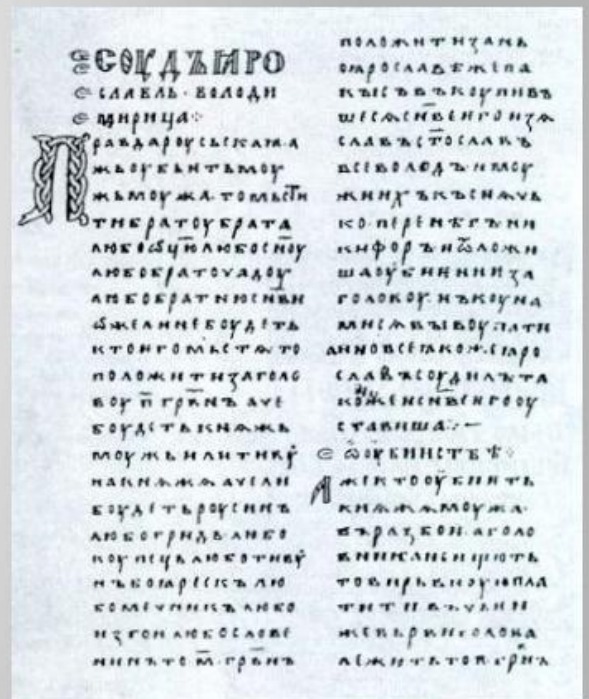 СОУДЪ ꙖРО
СЛАВЛЬ · ВОЛОДИ
МИРИЦА ⁘
Правда роусьскаꙗ · а
жь оубьѥть моу
жь моужа · то мьстити
ти братоу брата
любо ѡц҃ю любо сн҃оу
любо братоучадоу
любо братню сн҃ви
ѡже ли не боудеть
кто ѥго мьстѧ то
положити за голо
воу п҃ грв҃нъ аче
боудеть кнѧжь
моужь или тивоу
на кнѧжѧ аче ли
боудеть роусинъ
любо гридь любо
коупець любо тивоу
нъ боꙗрескъ лю
бо мечникъ любо
изгои любо слове
нинъ то м҃ · грв҃нъ
положити за нь
по ꙗрославѣ же па
кы съвъкоупивъ
шесѧ сн҃ве ѥго изѧ
славъ ст҃ославъ
всеволодъ и моу
жи ихъ къснѧчь
ко · перенѣгъ ни
кифоръ и ѿложи
ша оубиѥниѥ за
головоу · нъ коуна
ми сѧ выкоупати
а ино все ꙗкоже ꙗро
славъ соудилъ та
коже и сн҃ве ѥго оу
ставиша ⁘ –
Ѡ ОУБИИСТВѢ ⁘
Аже кто оубиѥть
кнѧжѧ моужа ·
въ разбои · а голо
вника не ищють
то вирьвноую пла
тити въ чьѥи
же вьрви голова
лежить то п҃ · грв҃нъ